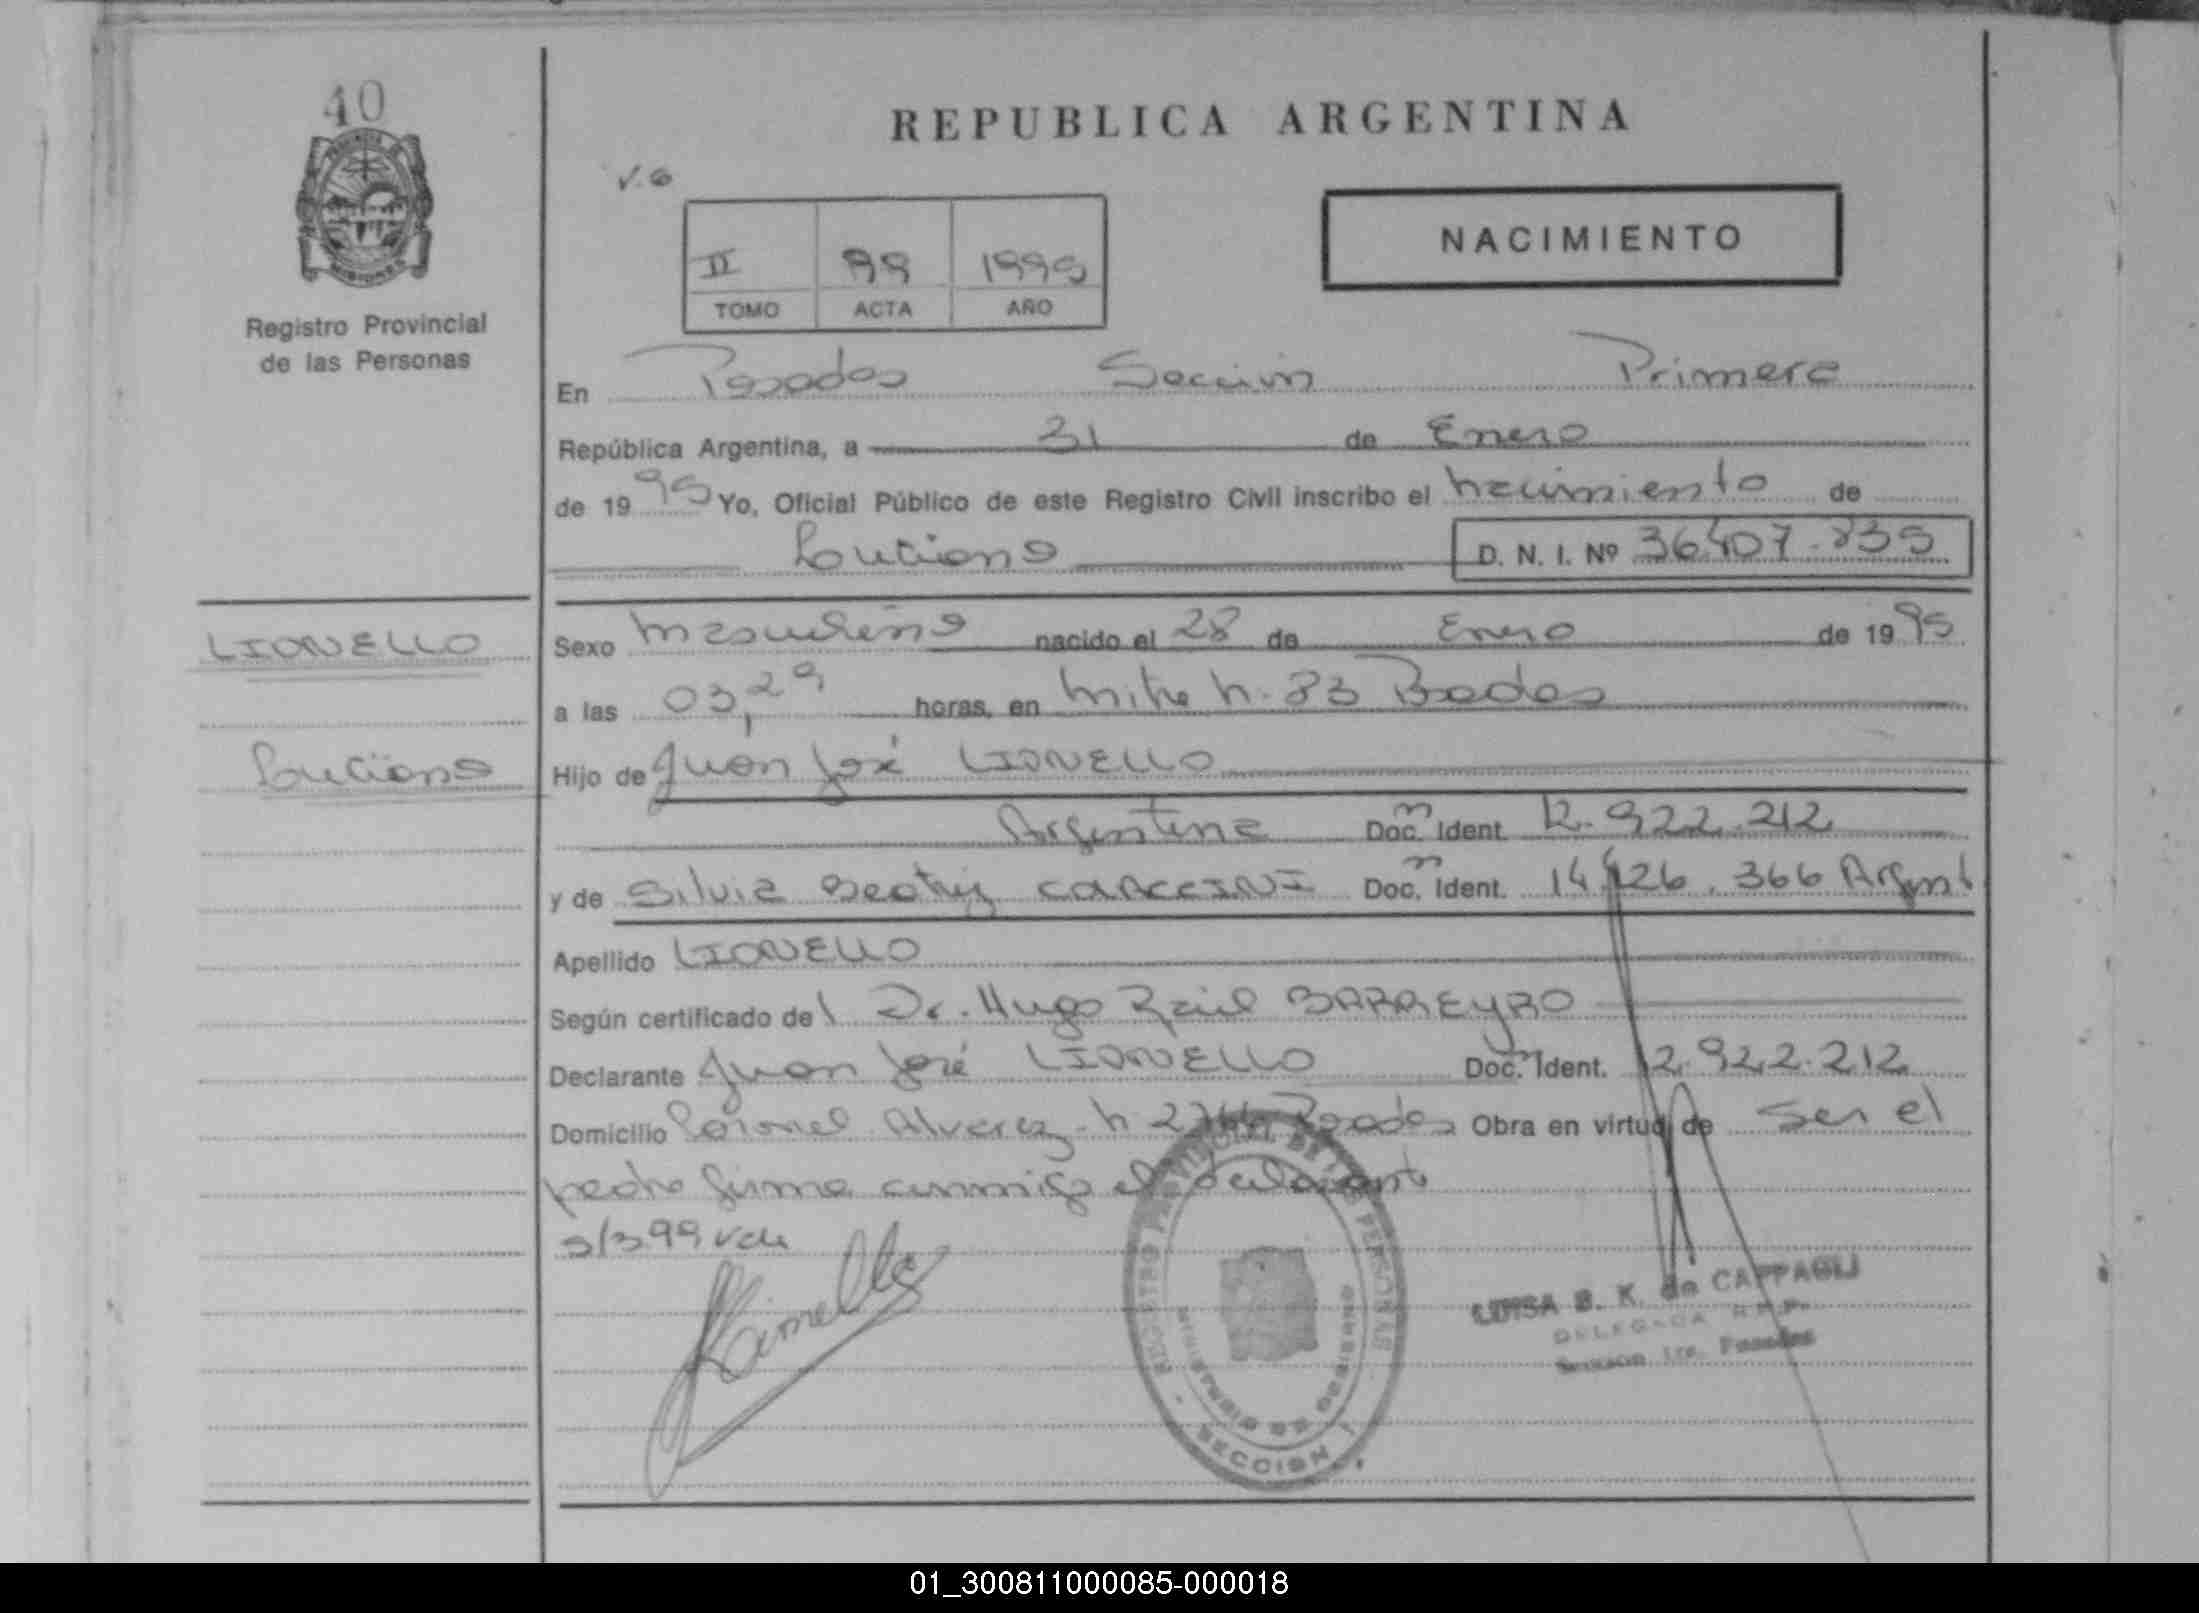 40
REPUBLICA ARGENTINA
V.G
NACIMIENTO
II 99 1995
TOMO ACTA AÑO
Registro Provincial
de las Personas
En Posadas Sección Primera
República Argentina, a 31 de Enero
de 1995 Yo, Oficial Público de este Registro Civil inscribo el nacimiento de
Luciano D. N. I. Nº 36.407.835
LIONELLO
Sexo masculino nacido el 28 de Enero de 1995
a las 03,29 horas, en Mitre n. 83 Posadas
Luciano
Hijo de Juan José LIONELLO
Argentina Doc. Ident. 12.922.212
y de Silvia Beatriz Doc. Ident. 366 Argent
Apellido LIONELLO
Según certificado del Dr. Hugo Raúl BARREYRO
Declarante Juan José LIONELLO Doc. Ident. 12.922.212
Domicilio Coronel Alvarez n Posadas Obra en virtud de ser el
padre firma conmigo el declarante
REGISTRO PROVINCIAL DE LAS PERSONAS
MINISTERIO DE GOBIERNO
SECCION 1
LUISA B. K. de CAPPAGLI
DELEGADA R.P.P.
Sección 1ra. Posadas
01_300811000085-000018